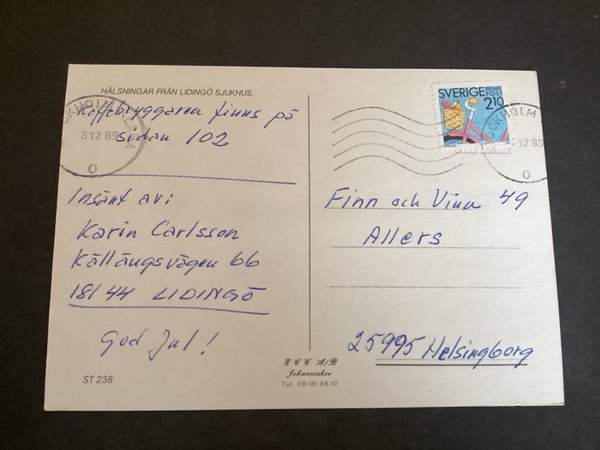 HÄLSNINGAR FRÅN LIDINGÖ SJUKHUS.
Kaffebryggaren finns på
sidan 102
Insänt av:
Karin Carlsson
Källängsvägen 66
181 44 LIDINGÖ
God Jul!
ST 238
E C C A/B
Johanneshov
Tel. 08/81 88 10
SVERIGE
POST
210
STOCKHOLM
3 12 89
O
CKHOLM
3 12 89
O
Finn och Vinn 49
Allers
25995 Helsingborg